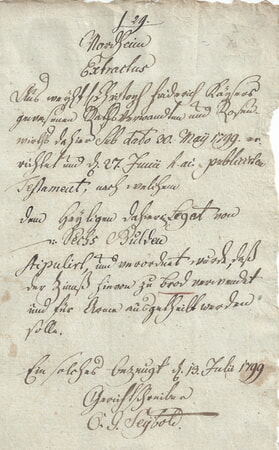 § 29.
Nordheim
Extractus
Aus weyl. Christoph Friderich Kaysers
gewesenen Rathsverwandten und Rosen-
wirths dahier sub dato 20. May 1799. er-
richtet und d. 27. Junii publicirten
Testament, nach welchem
dem Heyligen dahier Legat von
Sechs Gulden
stipulirt, und verordnet wurde, daß
der Zinnß hievon zu Brod verwendet
und für Arme ausgetheilt werden
solle.
Ein solches bezeugt d. 13. Julii 1799
Gerichtschreiber
Seybold.